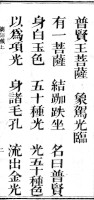 普賢王菩薩　象駕光臨
有一菩薩　結跏趺坐　名曰普賢
身白玉色　五十種光　光五十種色
以為項光　身諸毛孔　流出金光
二